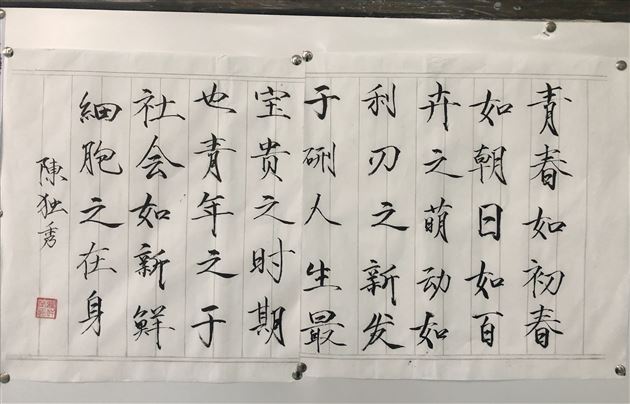 青春如初春
如朝日如百
卉之萌动如
利刃之新发
于硎人生最
宝贵之时期
也青年之于
社会如新鲜
细胞之在身
陳独秀